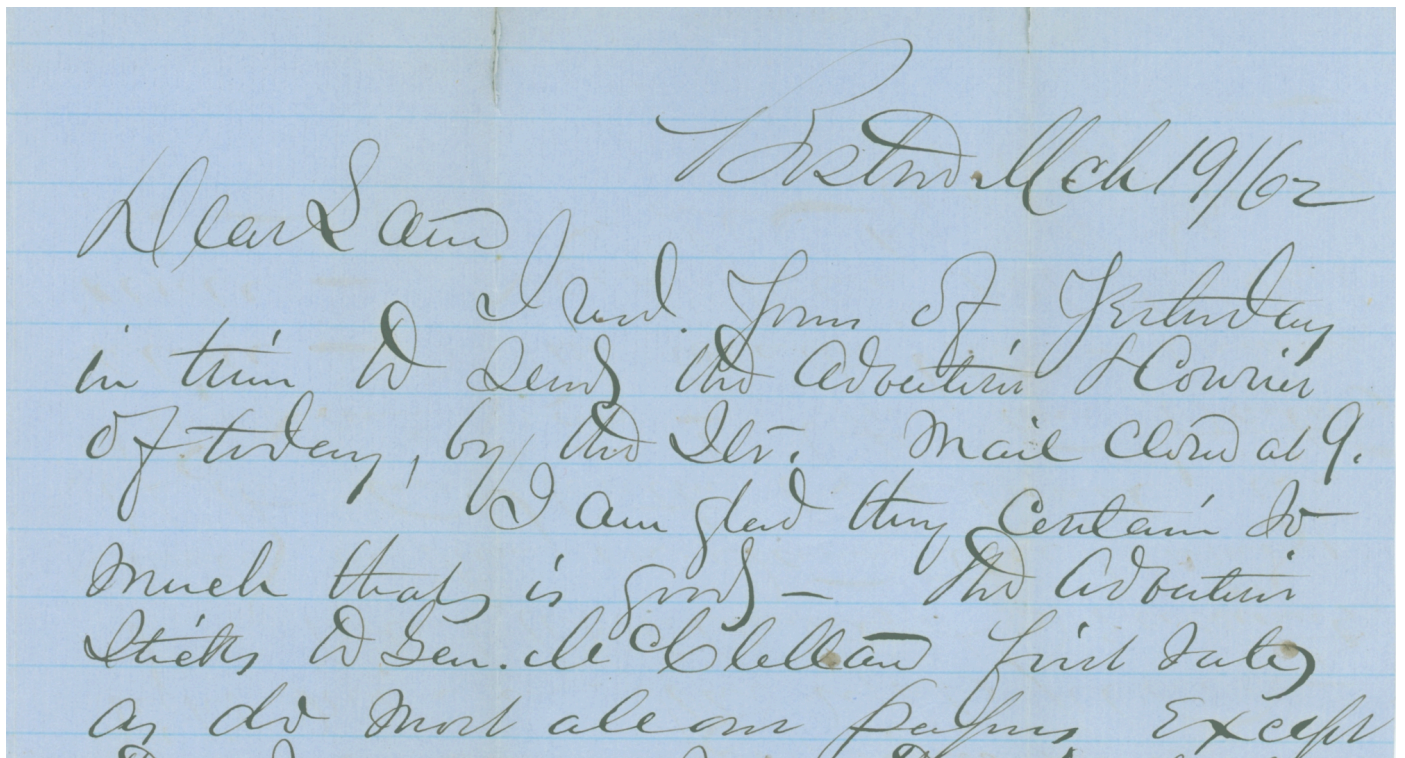 Boston Mch 19/62
Dear Sam
I recd. Yours of Yesterday
in time to send the Advertiser & Courier
of today, by the Str. Mail closed at 9.
I am glad they contain so
much that is good — The Advertiser
Sticks to Gen. McClellan first rate,
as do most all our papers Except